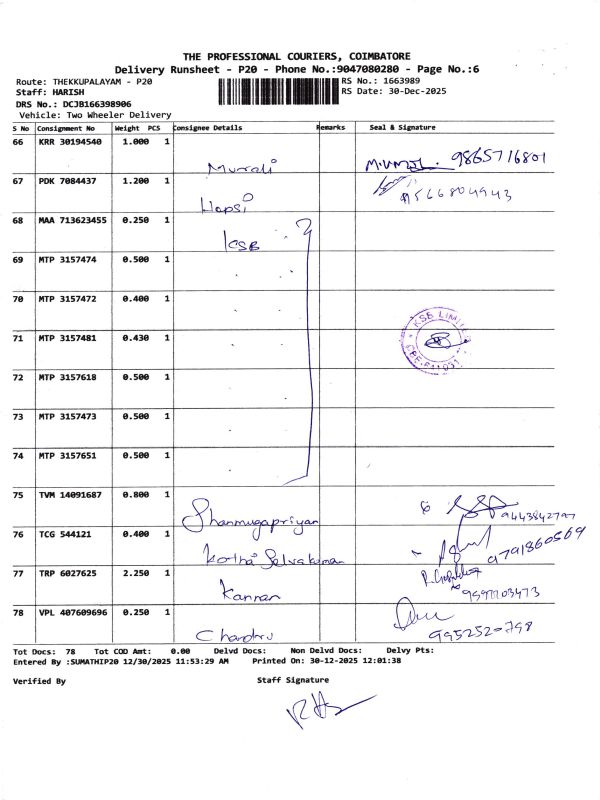 THE PROFESSIONAL COURIERS, COIMBATORE
Delivery Runsheet - P20 - Phone No.:9047080280 - Page No.:6
Route: THEKKUPALAYAM - P20 RS No.: 1663989
Staff: HARISH RS Date: 30-Dec-2025
DRS No.: DCJB166398906
Vehicle: Two Wheeler Delivery
S No Consignment No Weight PCS Consignee Details Remarks Seal & Signature
66 KRR 30194540 1.000 1
Murali 9865716801
67 PDK 7084437 1.200 1
Hapsi 9566804943
68 MAA 713623455 0.250 1
KSB
69 MTP 3157474 0.500 1
70 MTP 3157472 0.400 1
KSB LIMITED
71 MTP 3157481 0.430 1
72 MTP 3157618 0.500 1
73 MTP 3157473 0.500 1
74 MTP 3157651 0.500 1
75 TVM 14091687 0.800 1
Shanmugapriyan 9443842797
76 TCG 544121 0.400 1
Kortha Selvakumar 9791860569
77 TRP 6027625 2.250 1
Kannan
78 VPL 407609696 0.250 1
Chandru
Tot Docs: 78 Tot COD Amt: 0.00 Delvd Docs: Non Delvd Docs: Delvy Pts:
Entered By :SUMATHIP20 12/30/2025 11:53:29 AM Printed On: 30-12-2025 12:01:38
Verified By Staff Signature